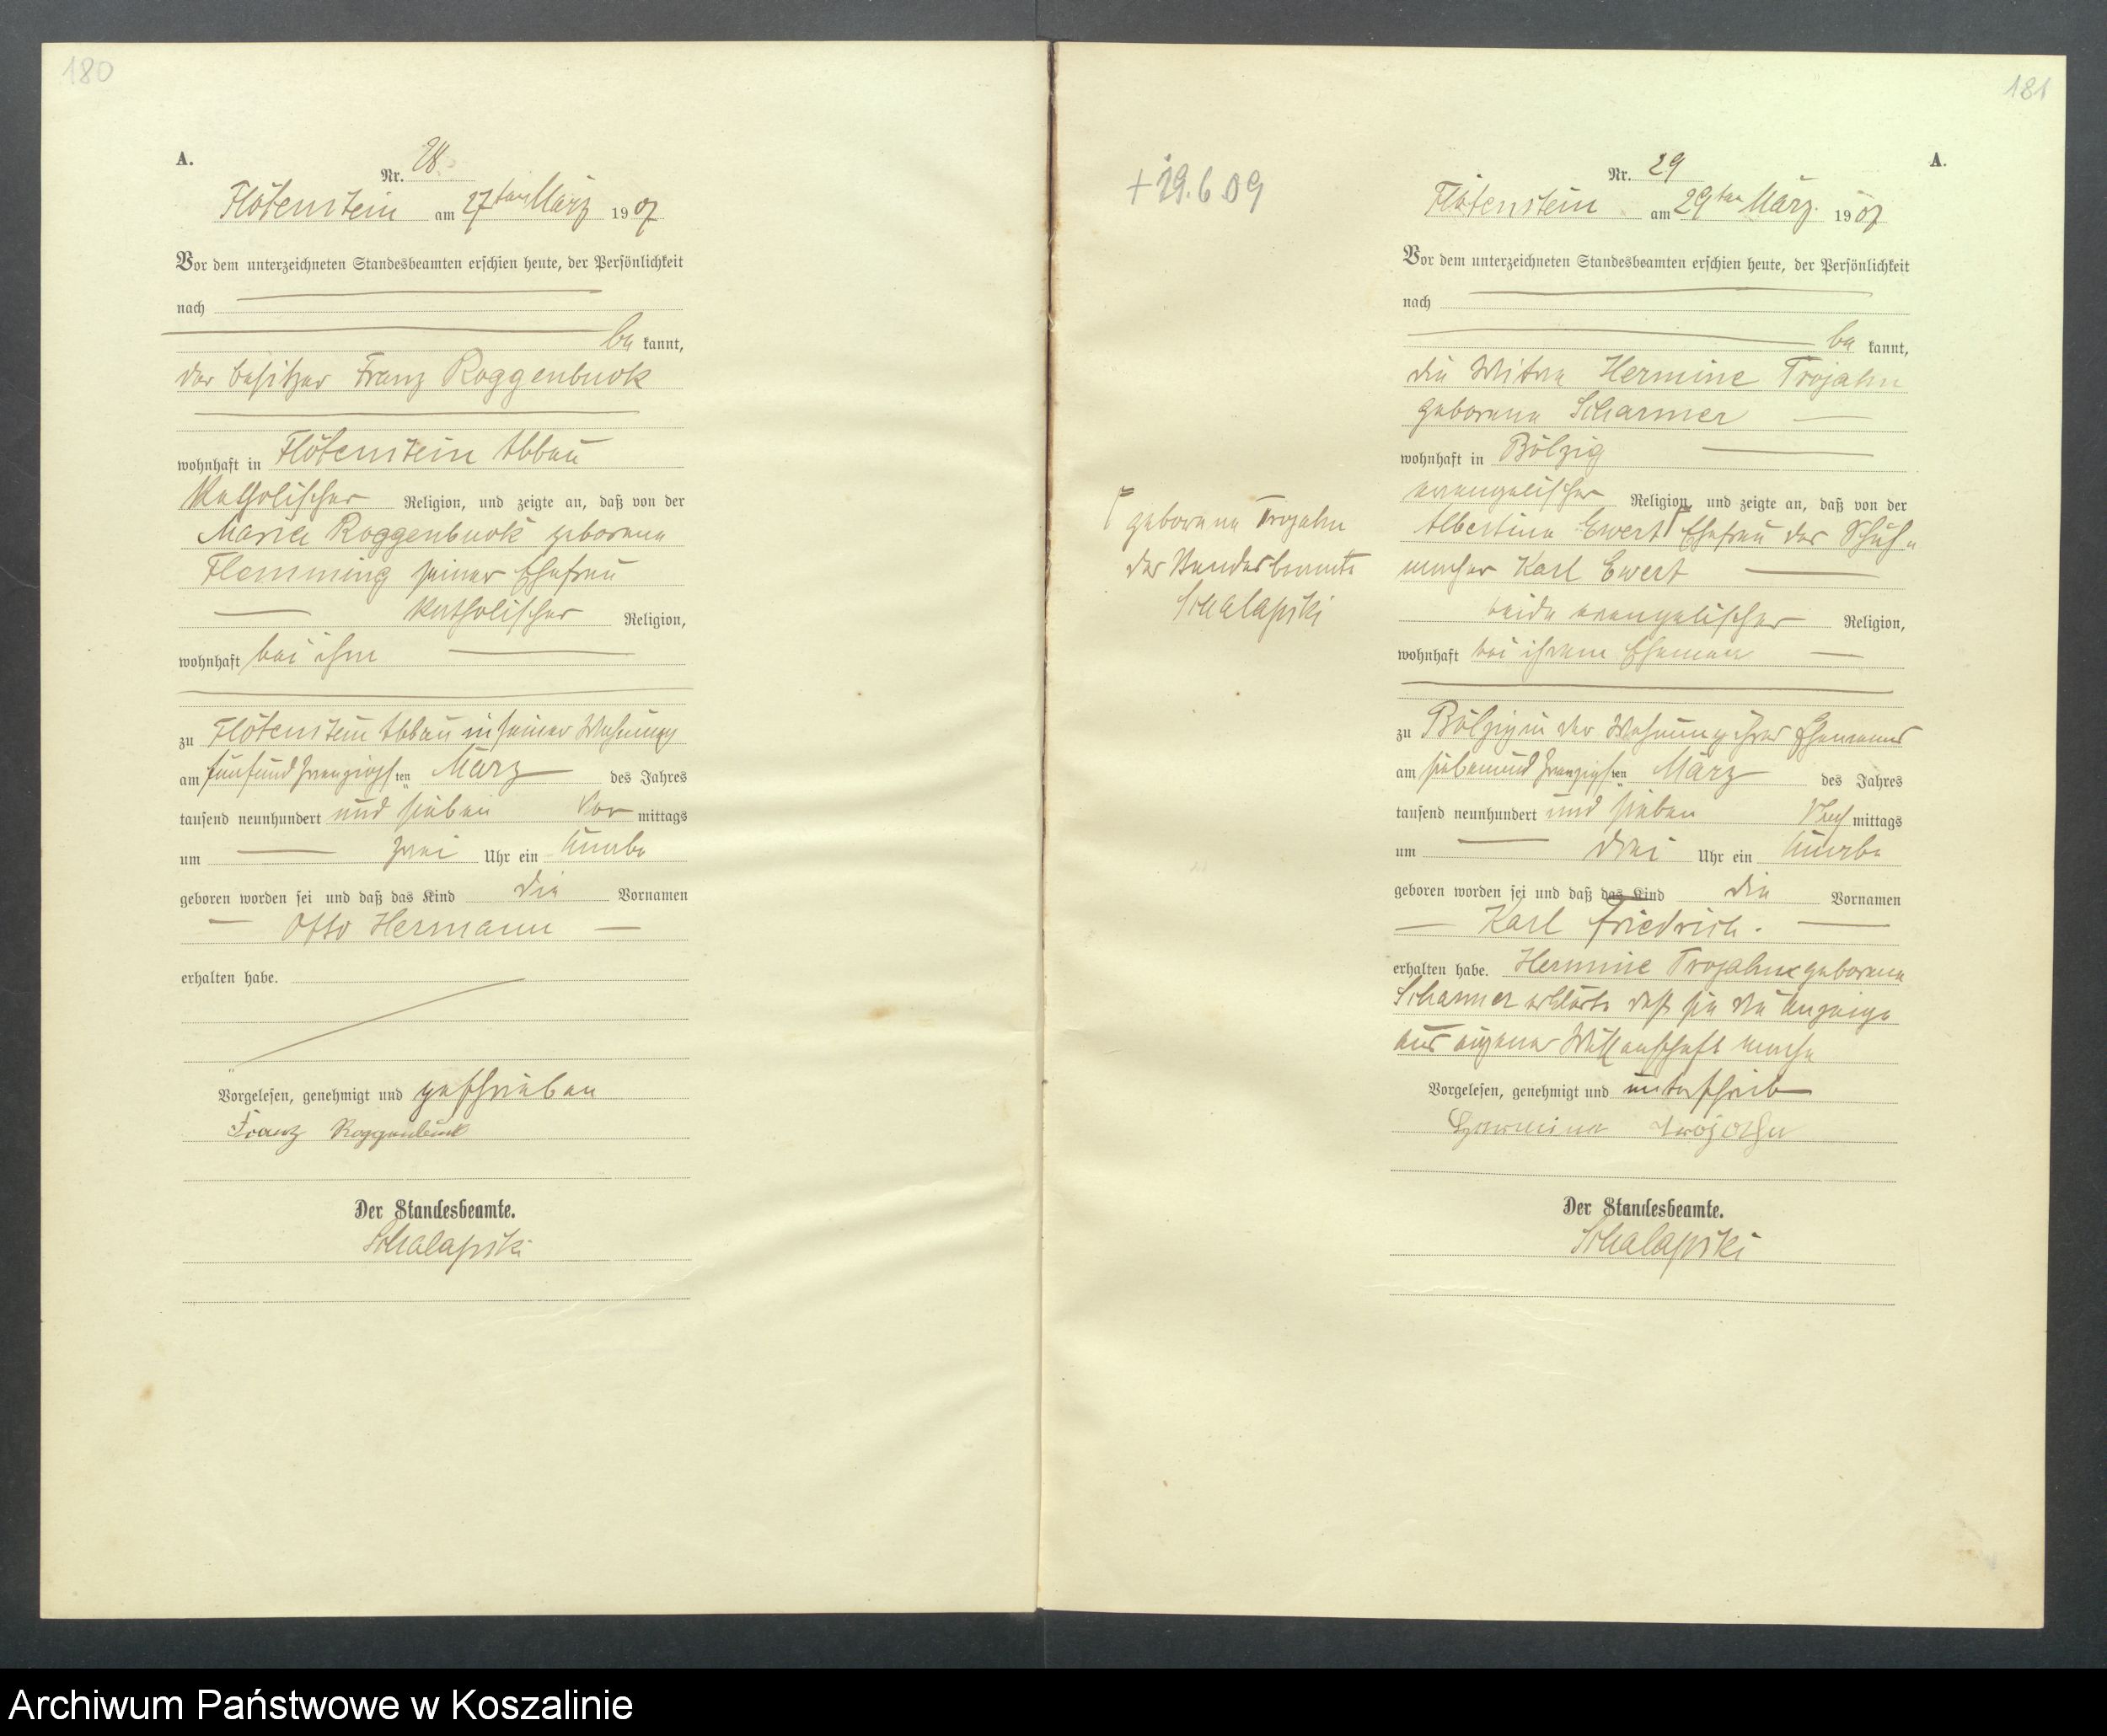 180
A.
Nr. 28.
Flötenstein am 27ten März 1907
Vor dem unterzeichneten Standesbeamten erschien heute, der Persönlichkeit
nach
be kannt,
der Besitzer Franz Roggenbuck
wohnhaft in Flötenstein Abbau
katholischer Religion, und zeigte an, daß von der
Maria Roggenbuck geborene
Flemming seiner Ehefrau
katholischer Religion,
wohnhaft bei ihm
zu Flötenstein Abbau in seiner Wohnung
am fünfundzwanzigsten März des Jahres
tausend neunhundert und sieben Vor mittags
um zwei Uhr ein Knabe
geboren worden sei und daß das Kind die Vornamen
Otto Hermann
erhalten habe.
Vorgelesen, genehmigt und geschrieben
Franz Roggenbuck
Der Standesbeamte.
Schalapski
181
A.
+ 29.6.09
Nr. 29
Flötenstein am 29ten März 1907
Vor dem unterzeichneten Standesbeamten erschien heute, der Persönlichkeit
nach
be kannt,
die Witwe Hermine Trojahn
geborene Scharmer
wohnhaft in Bölzig
evangelischer Religion, und zeigte an, daß von der
Albertine Ewert Ꞅ Ehefrau des Schuh-
macher Karl Ewert
beide evangelischer Religion,
wohnhaft bei ihrem Ehemann
Ꞅ geborene Trojahn
der Standesbeamte
Schalapski
zu Bölzig in der Wohnung ihres Ehemanns
am siebenundzwanzigsten März des Jahres
tausend neunhundert und sieben Nach mittags
um drei Uhr ein Knabe
geboren worden sei und daß das Kind die Vornamen
Karl Friedrich.
erhalten habe. Hermine Trojahn geborene
Scharmer erklärte daß sie die Anzeige
aus eigener Wissenschaft mache
Vorgelesen, genehmigt und unterschrieb
Hermine Trojahn
Der Standesbeamte.
Schalapski
Archiwum Państwowe w Koszalinie